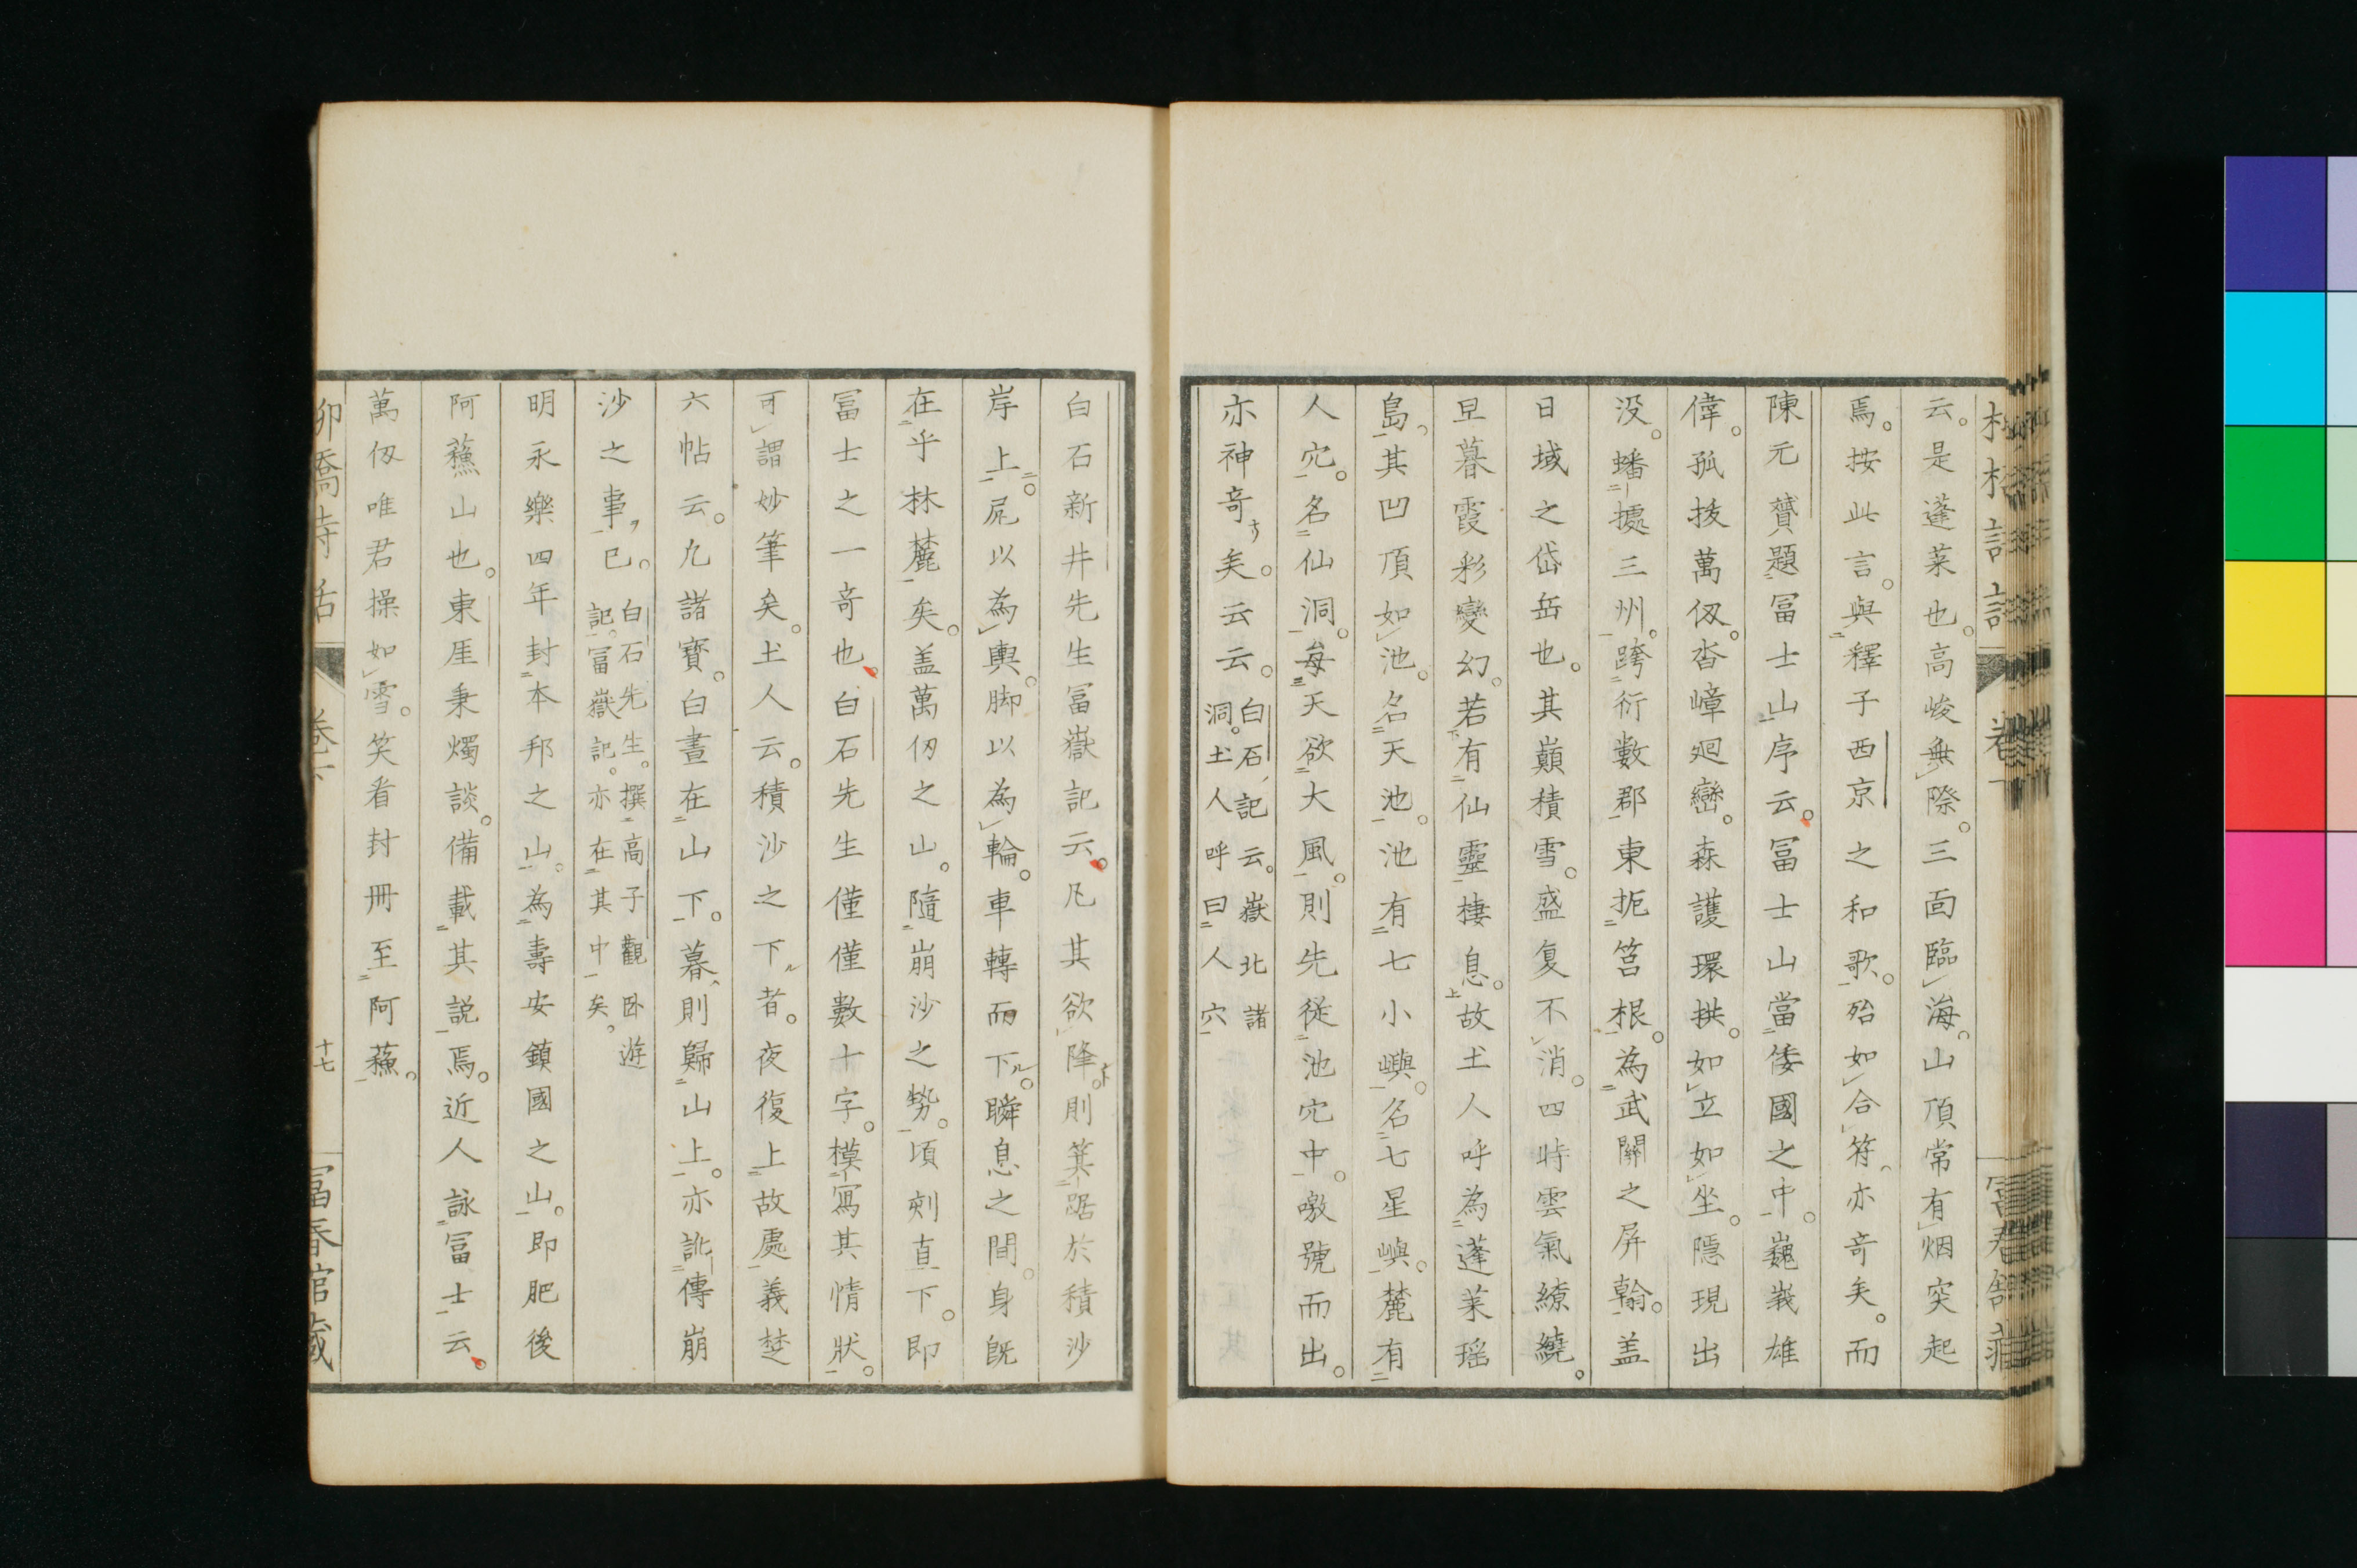 云。是蓬萊也。高峻無際。三面臨海。山頂常有烟突起
焉。按此言。與釋子西京之和歌。殆如合符。亦奇矣。而
陳元贇題冨士山序云。冨士山當倭國之中。巍峩雄
偉。孤拔萬仭。沓嶂廻巒。森護環拱。如立如坐。隱現出
没。蟠據三州。跨衍數郡。東扼筥根。為武關之屏翰。盖
日域之岱岳也。其巔積雪。盛夏不消。四時雲氣繚繞。
旦暮霞彩變幻。若有仙靈棲息。故土人呼為蓬萊瑶
島。其凹頂如池。名天池。池有七小嶼。名七星嶼。麓有
人穴。名仙洞。每天欲大風。則先從池穴中。噭號而出。
亦神奇矣。云云。白石記云。嶽北諸
洞。土人呼曰人穴
白石新井先生冨嶽記云。凡其欲降。則箕踞於積沙
岸上。尻以為輿。脚以為輪。車轉而下。瞬息之間。身既
在乎林麓矣。盖萬仞之山。隨崩沙之勢。頃刻直下。即
冨士之一奇也。白石先生僅僅數十字。模寫其情狀。
可謂妙筆矣。土人云。積沙之下者。夜復上故處。義楚
六帖云。凡諸寶。白晝在山下。暮則歸山上。亦訛傳崩
沙之事已。白石先生。撰高子觀卧遊
記。冨嶽記。亦在其中矣。
明永樂四年封本邦之山。為壽安鎮國之山。即肥後
阿蘓山也。東厓秉燭談。備載其説焉。近人詠冨士云。
萬仭唯君操如雪。笑看封冊至阿蘓。
柳橋詩話
卷下
十七
冨春館藏